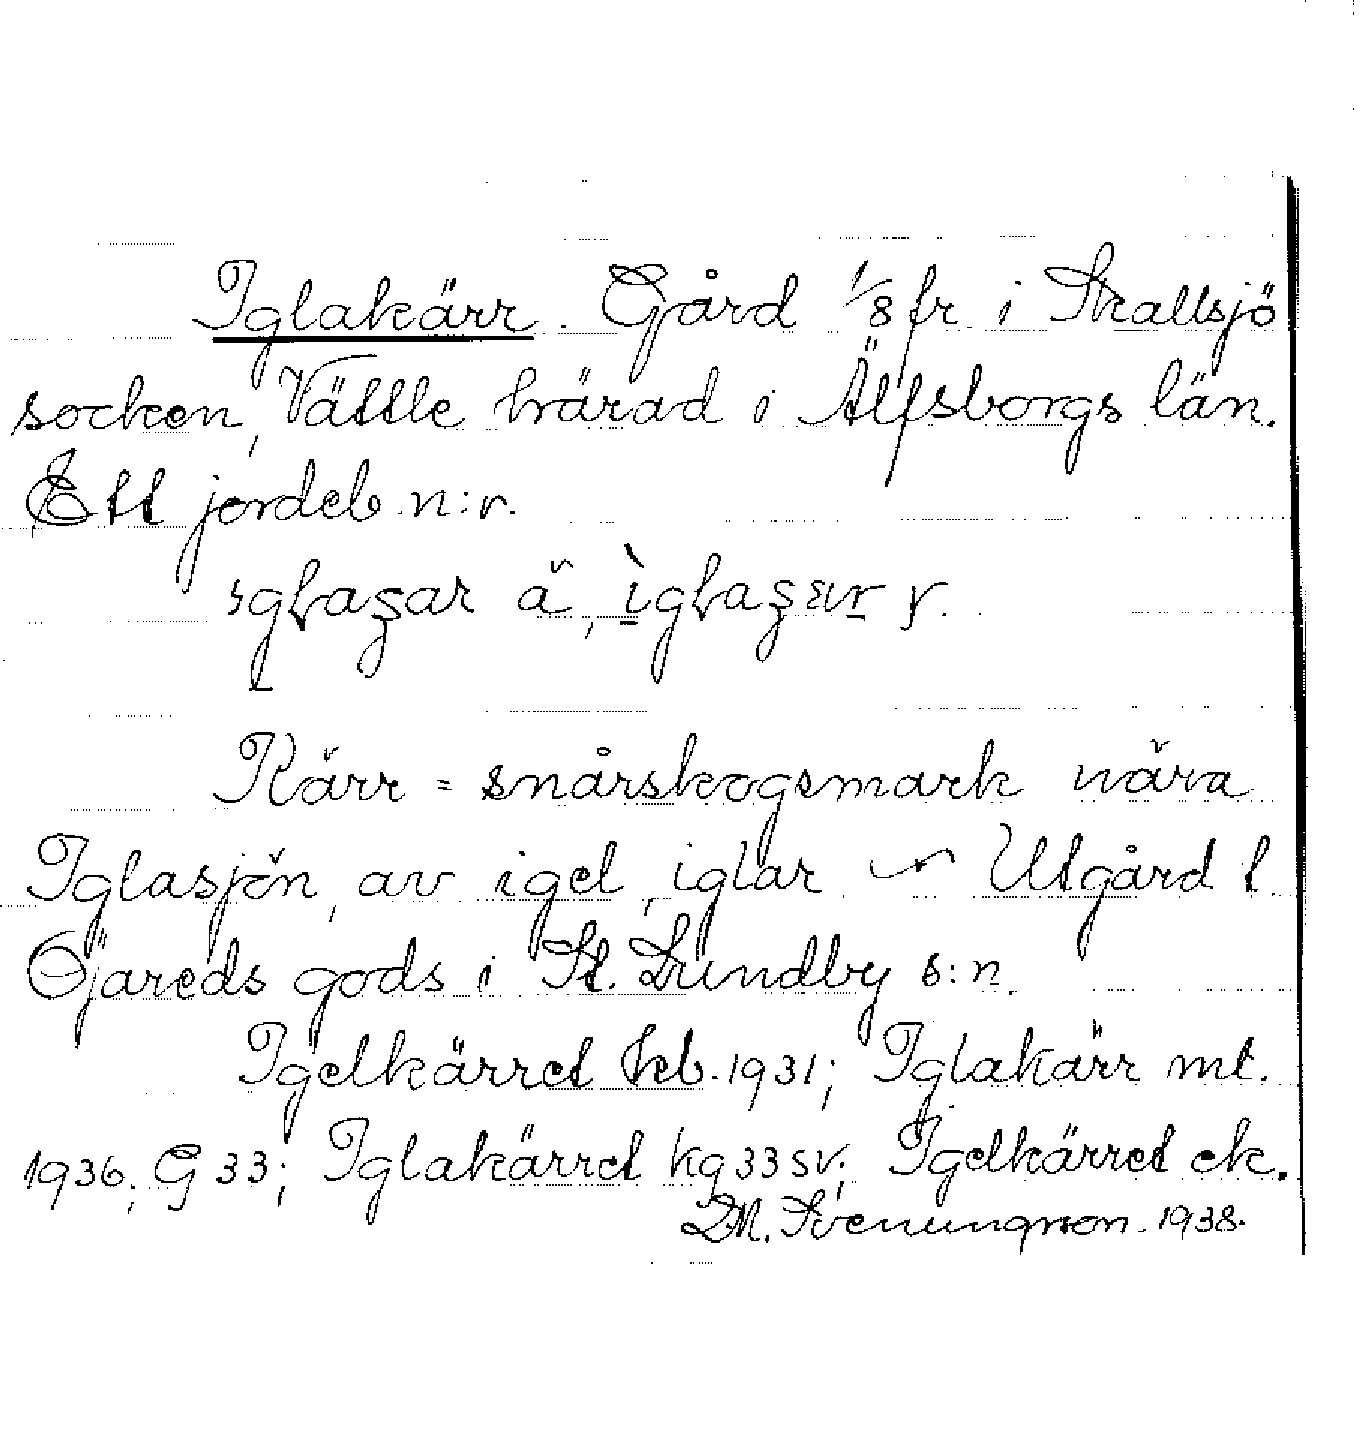 Iglakärr. Gård 1/8 fr. i Skallsjö
socken, Vättle härad i Älfsborgs län.
Ett jordeb. n:r.
ä, y.
Kärr = snårskogsmark nära
Iglasjön, av igel, iglar. Utgård t.
Öjareds gods i St. Lundby s:n.
Igelkärret kb. 1931; Iglakärr mt.
1936; G 33; Iglakärret kg 33 sv; Igelkärret ek.
D.M. Svenungsson. 1938.